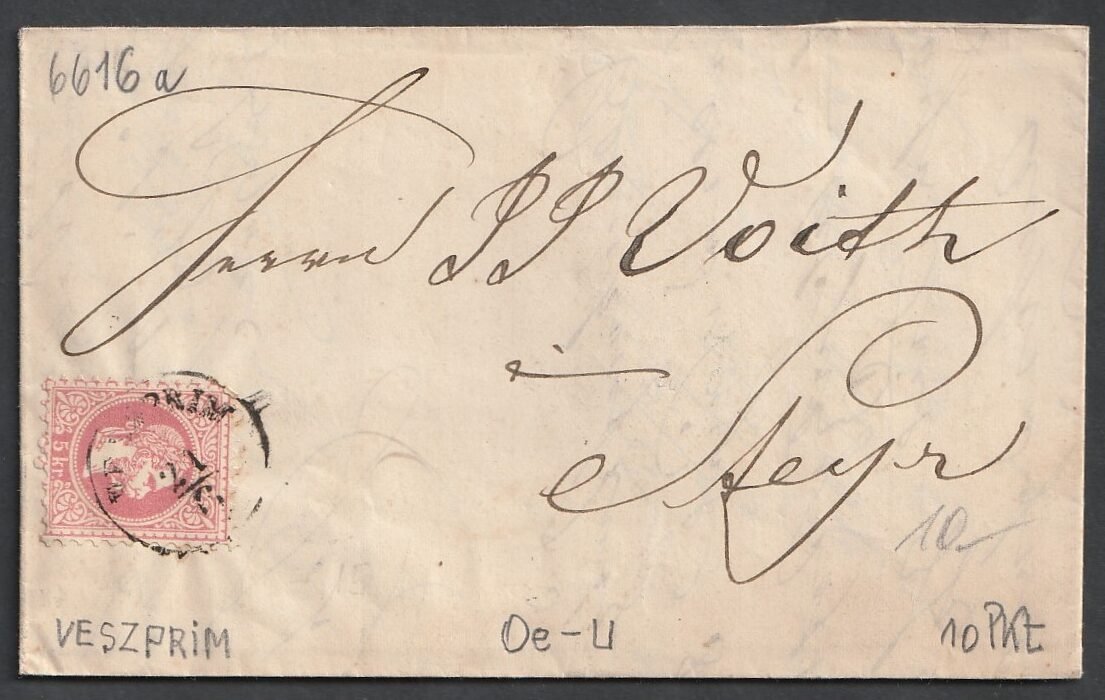 6616a
Herrn JJ Voith
à
Steyr
5 kr.
10-
VESZPRIM
Oe-U
10 Pkt